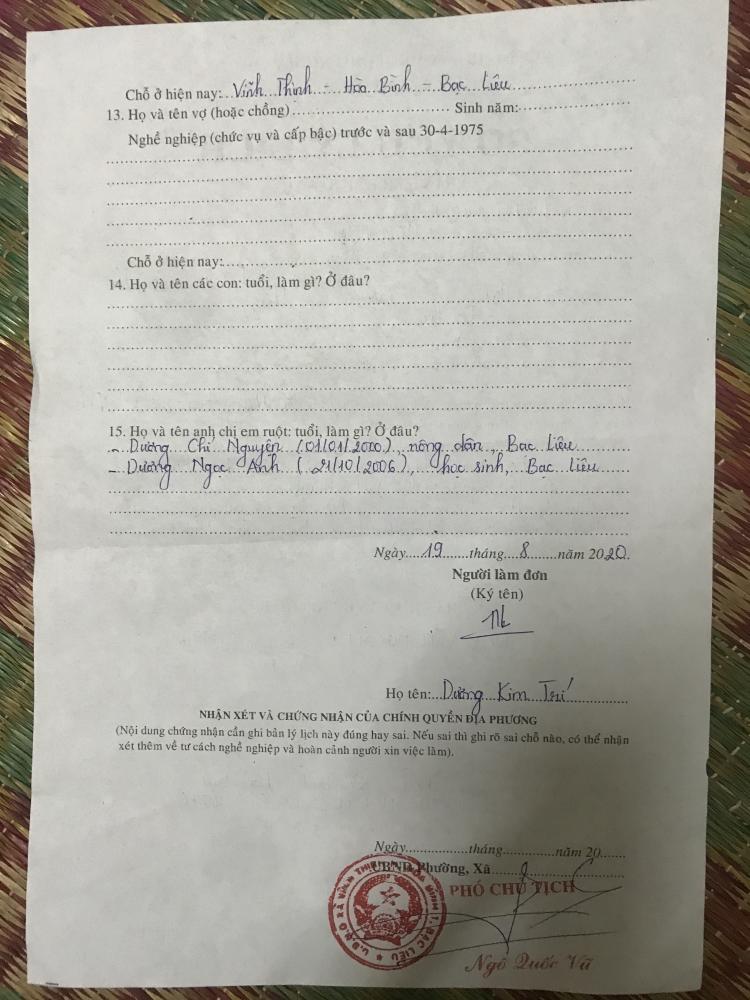 Chỗ ở hiện nay: Vĩnh Thịnh - Hòa Bình - Bạc Liêu
13. Họ và tên vợ (hoặc chồng)........ Sinh năm:........
Nghề nghiệp (chức vụ và cấp bậc) trước và sau 30-4-1975
Chỗ ở hiện nay:........
14. Họ và tên các con: tuổi, làm gì? Ở đâu?
15. Họ và tên anh chị em ruột: tuổi, làm gì? Ở đâu?
- Dương Chí Nguyên (01/01/2000), nông dân, Bạc Liêu
- Dương Ngọc Anh (21/10/2006), học sinh, Bạc Liêu
Ngày 19 tháng 8 năm 2020
Người làm đơn
(Ký tên)
Họ tên: Dương Kim Trí
NHẬN XÉT VÀ CHỨNG NHẬN CỦA CHÍNH QUYỀN ĐỊA PHƯƠNG
(Nội dung chứng nhận cần ghi bản lý lịch này đúng hay sai. Nếu sai thì ghi rõ sai chỗ nào, có thể nhận
xét thêm về tư cách nghề nghiệp và hoàn cảnh người xin việc làm).
Ngày........ tháng........ năm 20......
UBND Phường, Xã........
PHÓ CHỦ TỊCH
U.B.N.D XÃ VĨNH THỊNH H. HÒA BÌNH T. BẠC LIÊU
Ngô Quốc Vũ